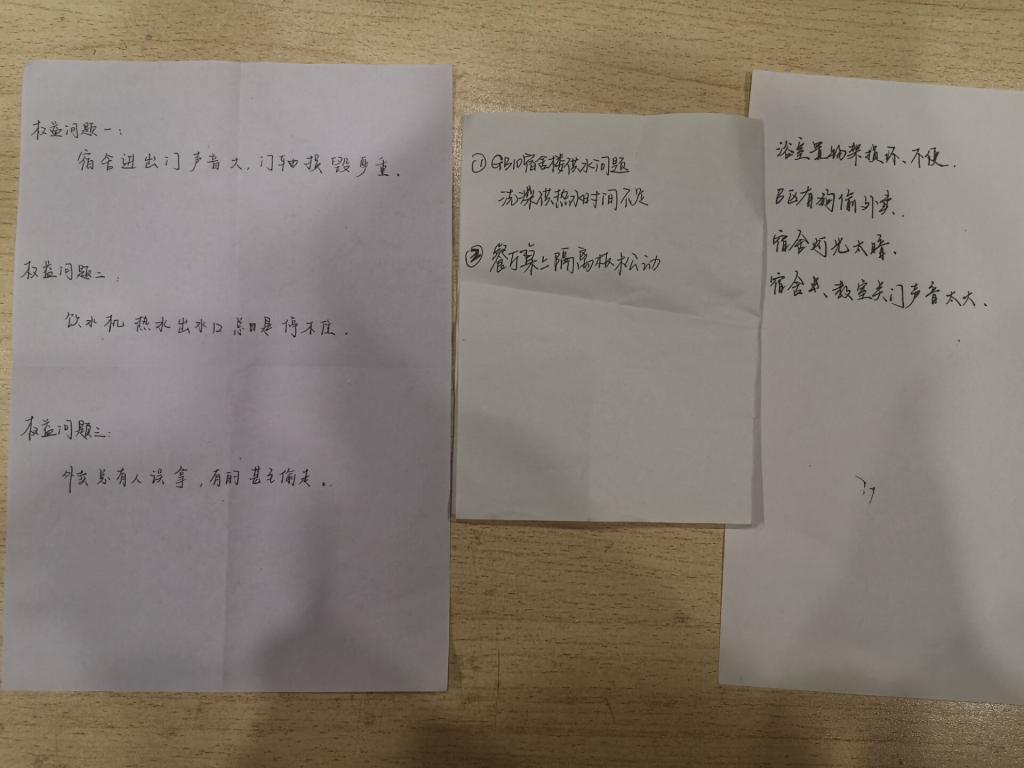 权益问题一：
宿舍进出门声音大，门轴损毁严重。
权益问题二：
饮水机热水出水口总是停不住。
权益问题三：
外卖总有人误拿，有的甚至偷走。
① GB10宿舍楼供水问题
洗澡供热水时间不足
② 餐厅桌上隔离板松动
浴室置物架损坏、不便.
B区有狗偷外卖.
宿舍灯光太暗.
宿舍关、教室关门声音太大.